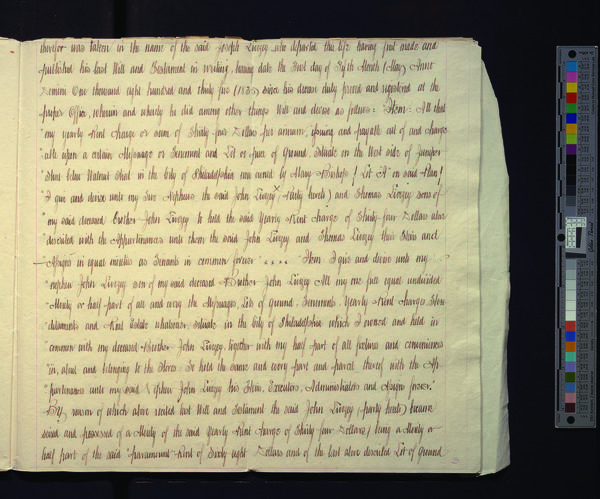 therefor was taken in the name of the said Joseph Livezey who departed this life having first made and
published his last Will and Testament in writing, bearing date the First day of Fifth Month (May) Anno
Domini One thousand eight hundred and thirty five (1835) since his decease duly proved and registered at the
proper Office, wherein and whereby he did among other things Will and devise as follows: "Item: All that
"my yearly Rent Charge or sum of Thirty four Dollars per annum, issuing and payable out of and charge
"able upon a certain Messuage or Tenement and Lot or piece of Ground, Situate on the West side of Juniper
"Street below Walnut Street in the City of Philadelphia now owned by Mary Bishop ( Lot 'A' on said Plan)
"I give and devise unto my Two Nephews the said John Livezey (party hereto) and Thomas Livezey sons of
"my said deceased Brother John Livezey to hold the said Yearly Rent Charge of Thirty four Dollars above
"described with the Appurtenances unto them the said John Livezey and Thomas Livezey their Heirs and
"Assigns in equal moieties as Tenants in common forever" "Item I give and devise unto my
"nephew John Livezey son of my said deceased Brother John Livezey All my one full equal undivided
"Moiety or half part of all and every the Messuages, Lots of Ground, Tenements, Yearly Rent Charges, Here
"ditaments and Real Estate whatsoever, situate in the City of Philadelphia which I owned and held in
"common with my deceased Brother John Livezey, together with my half part of all fixtures and conveniences
"in, about and belonging to the Stores To hold the same and every part and parcel thereof with the Ap-
"purtenances unto my said Nephew John Livezey his Heirs, Executors, Administrators and Assigns forever."
By reason of which above recited last Will and Testament the said John Livezey (party hereto) became
seized and possessed of a Moiety of the said Yearly Rent Charge of Thirty four Dollars) being a Moiety or
half part of the said "paramount" Rent of Sixty eight Dollars and of the last above described Lot of Ground